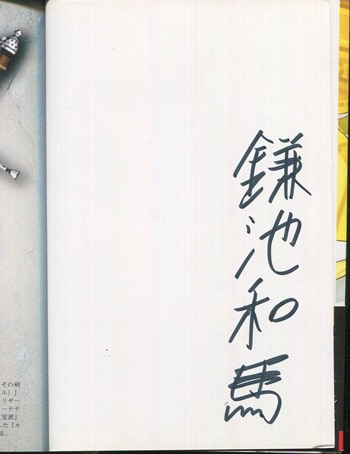 鎌池和馬
その剣
ル）」
リザー
ーテナ
定派』
た『カ
る。